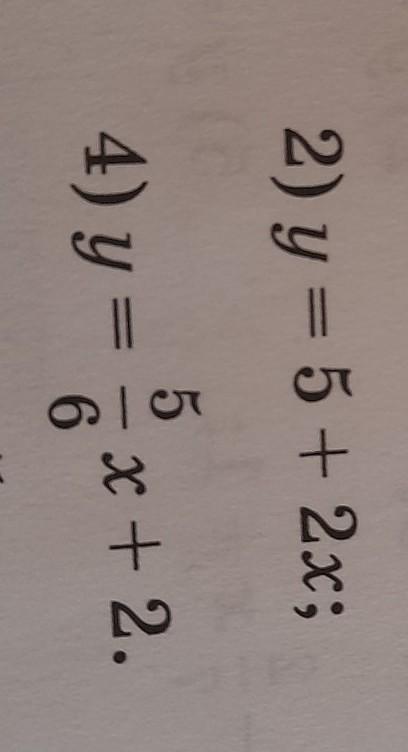 2) y = 5 + 2x;
4) y = \frac{5}{6}x + 2.